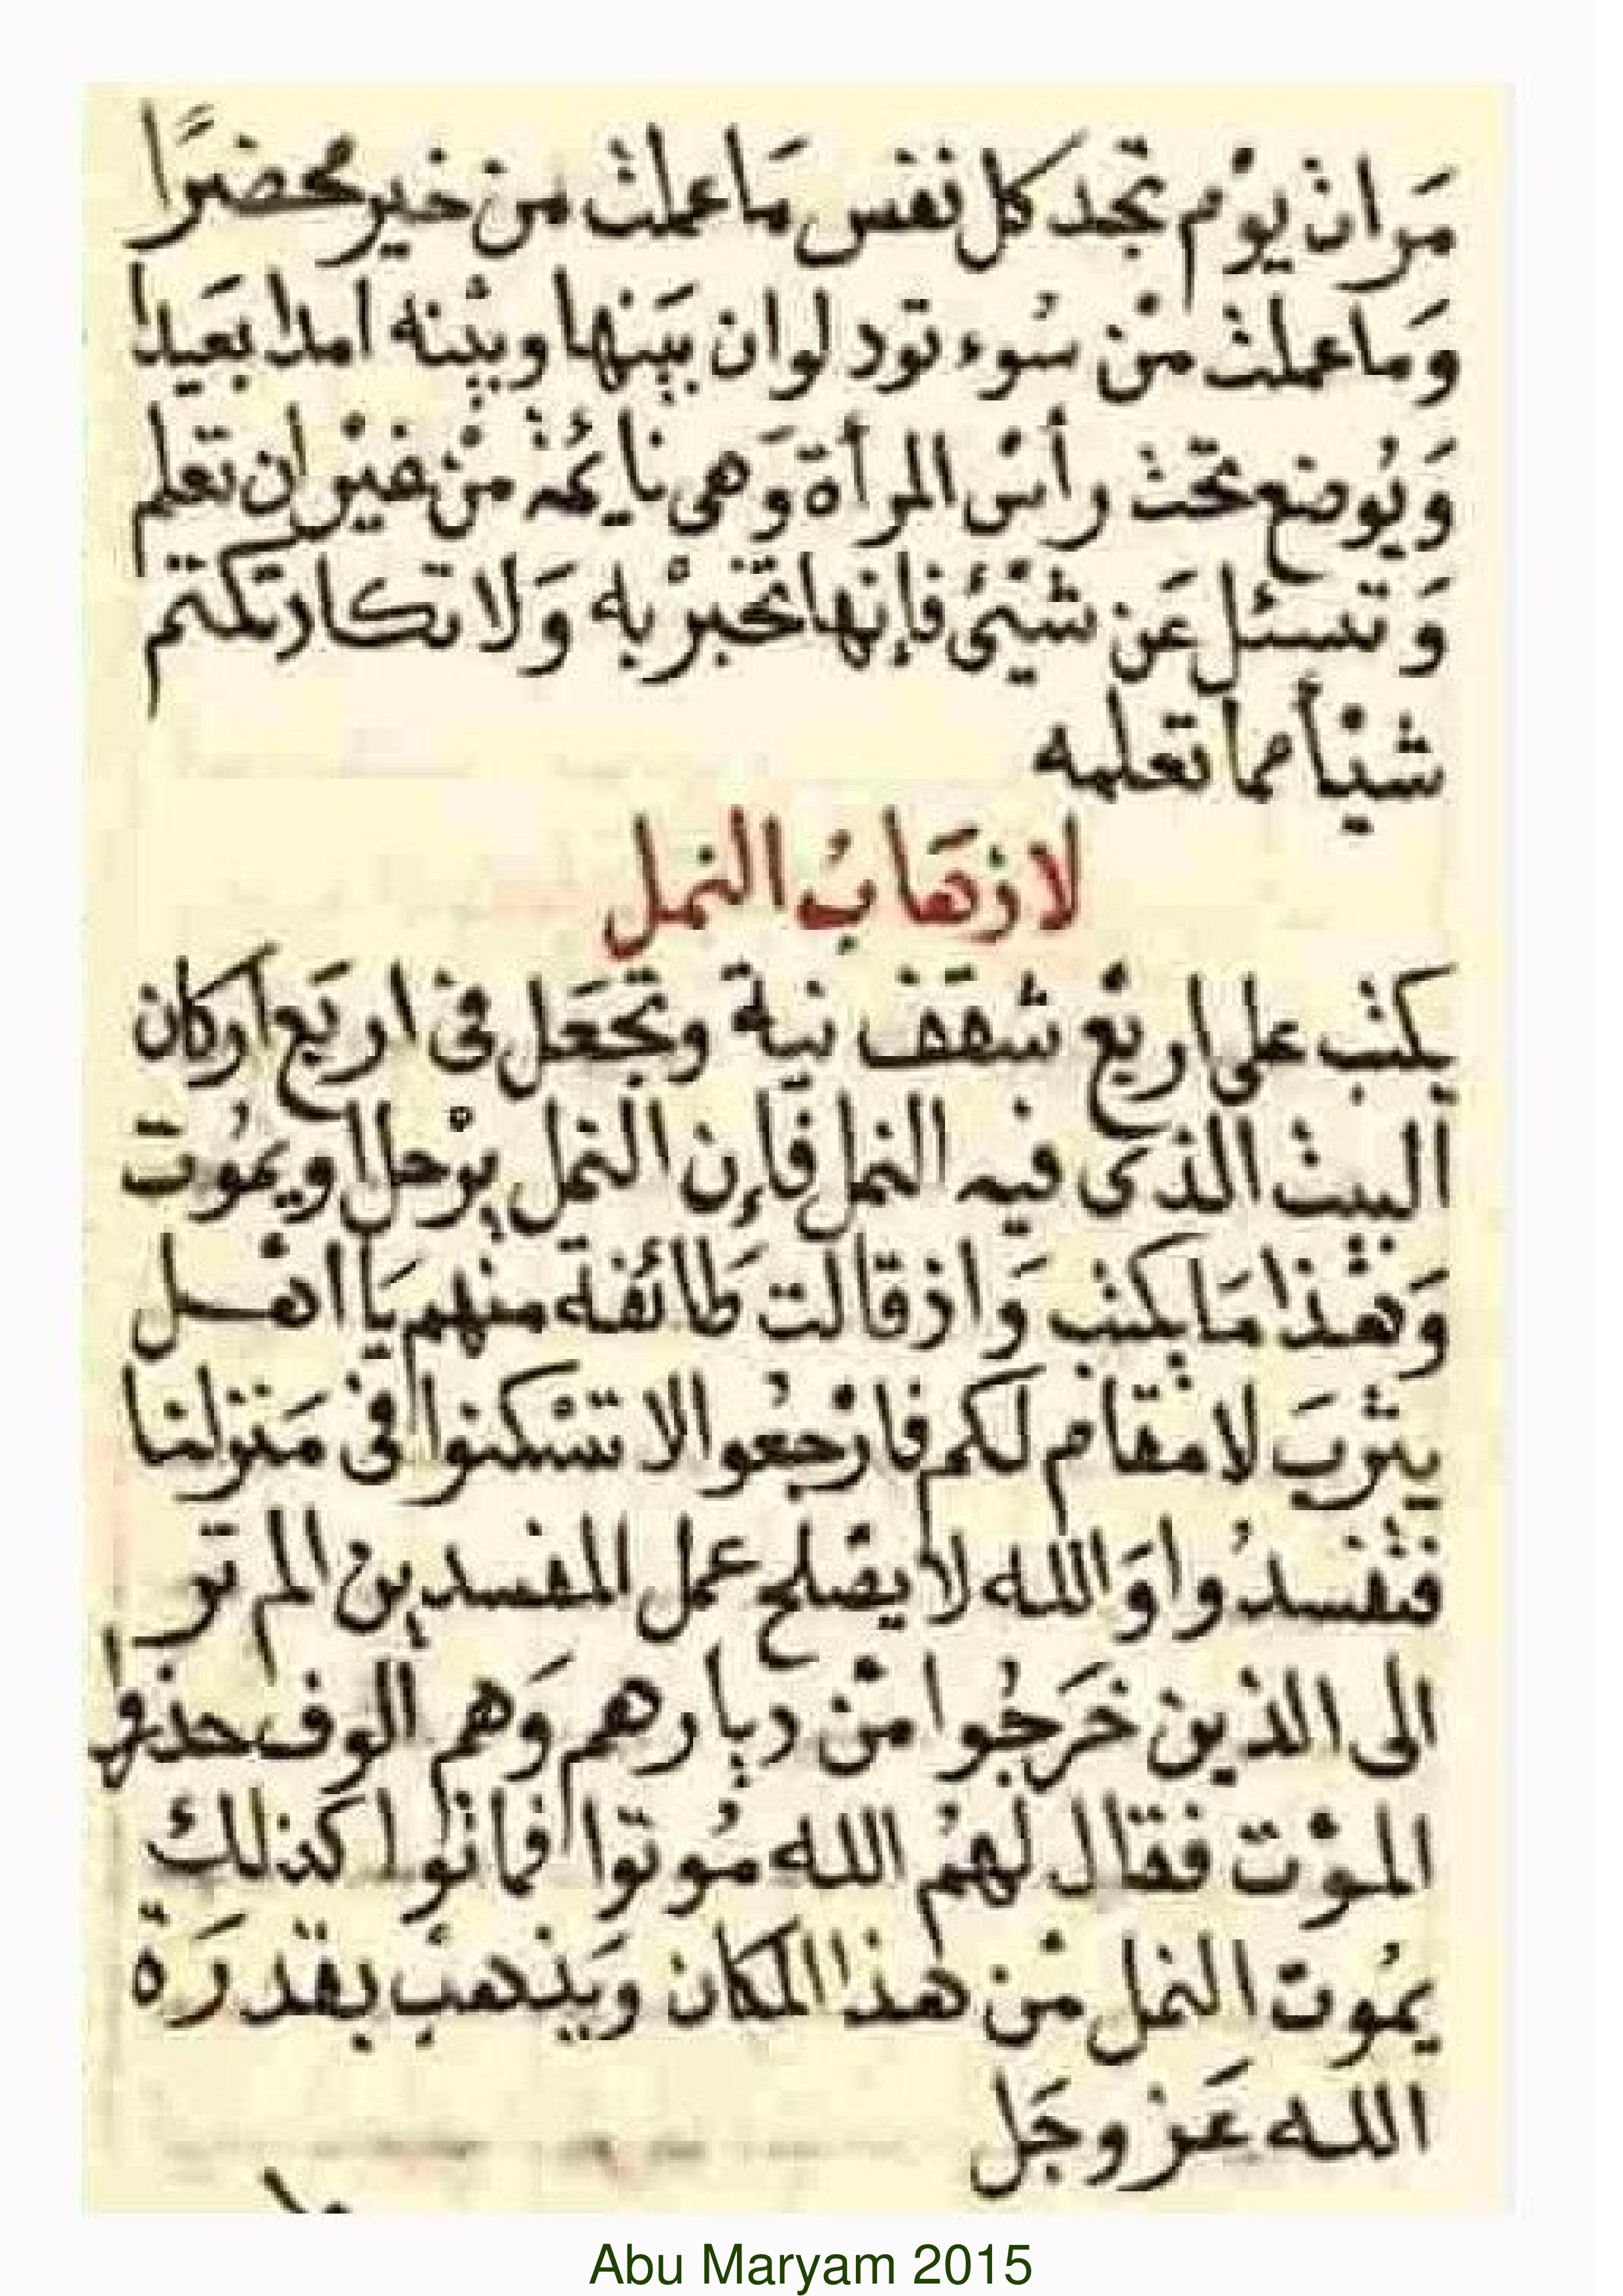 مَرات يوْم تجد كل نفس مَا عملت من خير محضرًا
وَما عملت منْ سُوء تود لوان بيَنها وبينه امدا بعَيدا
وَيُوضع تحت رأس المرأة وَهى نايُمة منْ غيْران تعلم
وَ تسئل عَن شيْئ فإنها تخبرْ به وَلا تكاد تكتم
شيأ مما تعلمه
لاذهَابُ النمل
يكتب على اربعْ شقف نية وتجعَل فى اربَع اركان
البيت الذى فيه النمل فإن النمل يرْحل ويمُوت
وَهذا مَا يكتب وَاذ قالت طَائفة منهم يَا اهل
يثربَ لا مقام لكم فارْجعُوا لا تسْكنوا فى مَنزلنا
فتفسدُوا وَالله لا يصْلح عمل المفسدين الم تر
الى الذين خَرجُوا منْ ديارهم وَهم الوف حذر
الموْت فقال لهمُ الله مُوتوا فماتوا كذلك
يمُوت النمل منْ هذا المكان وَيذهبُ بقدرَة
الله عَز وجَل
Abu Maryam 2015